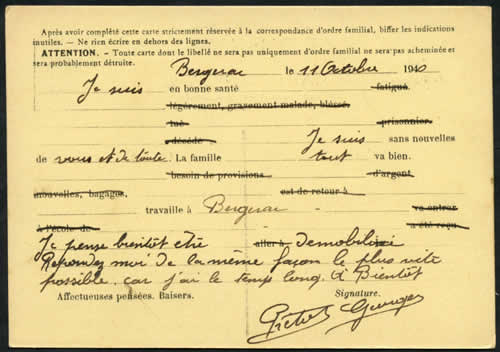 Après avoir complété cette carte strictement réservée à la correspondance d'ordre familial, biffer les indications
inutiles. — Ne rien écrire en dehors des lignes.
ATTENTION. - Toute carte dont le libellé ne sera pas uniquement d'ordre familial ne sera pas acheminée et
sera probablement détruite.
Bergerac le 11 Octobre 1940
Je suis en bonne santé fatigué
légèrement, gravement malade, blessé
tué prisonnier
décédé Je suis sans nouvelles
de vous et de toute. La famille tout va bien.
besoin de provisions d'argent
nouvelles, bagages est de retour à
travaille à Bergerac va entrer
à l'école de a été reçu
Je pense bientôt être aller à Demobilisé
Repondez moi de la même façon le plus vite
possible car j'ai le temps long. A Bientôt
Affectueuses pensées. Baisers. Signature.
Georges